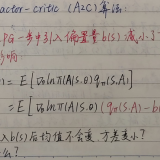 actor-critic (A2C) 算法:
PG 一步中引入偏置量 b(s) 减小了
影响
= E [ ∇θ lnπ(A|S,θ) qπ(S,A)]
= E [ ∇θ lnπ(A|S,θ) (qπ(S,A) - b(
入 b(s) 后均值不会变 方差变小?
么?